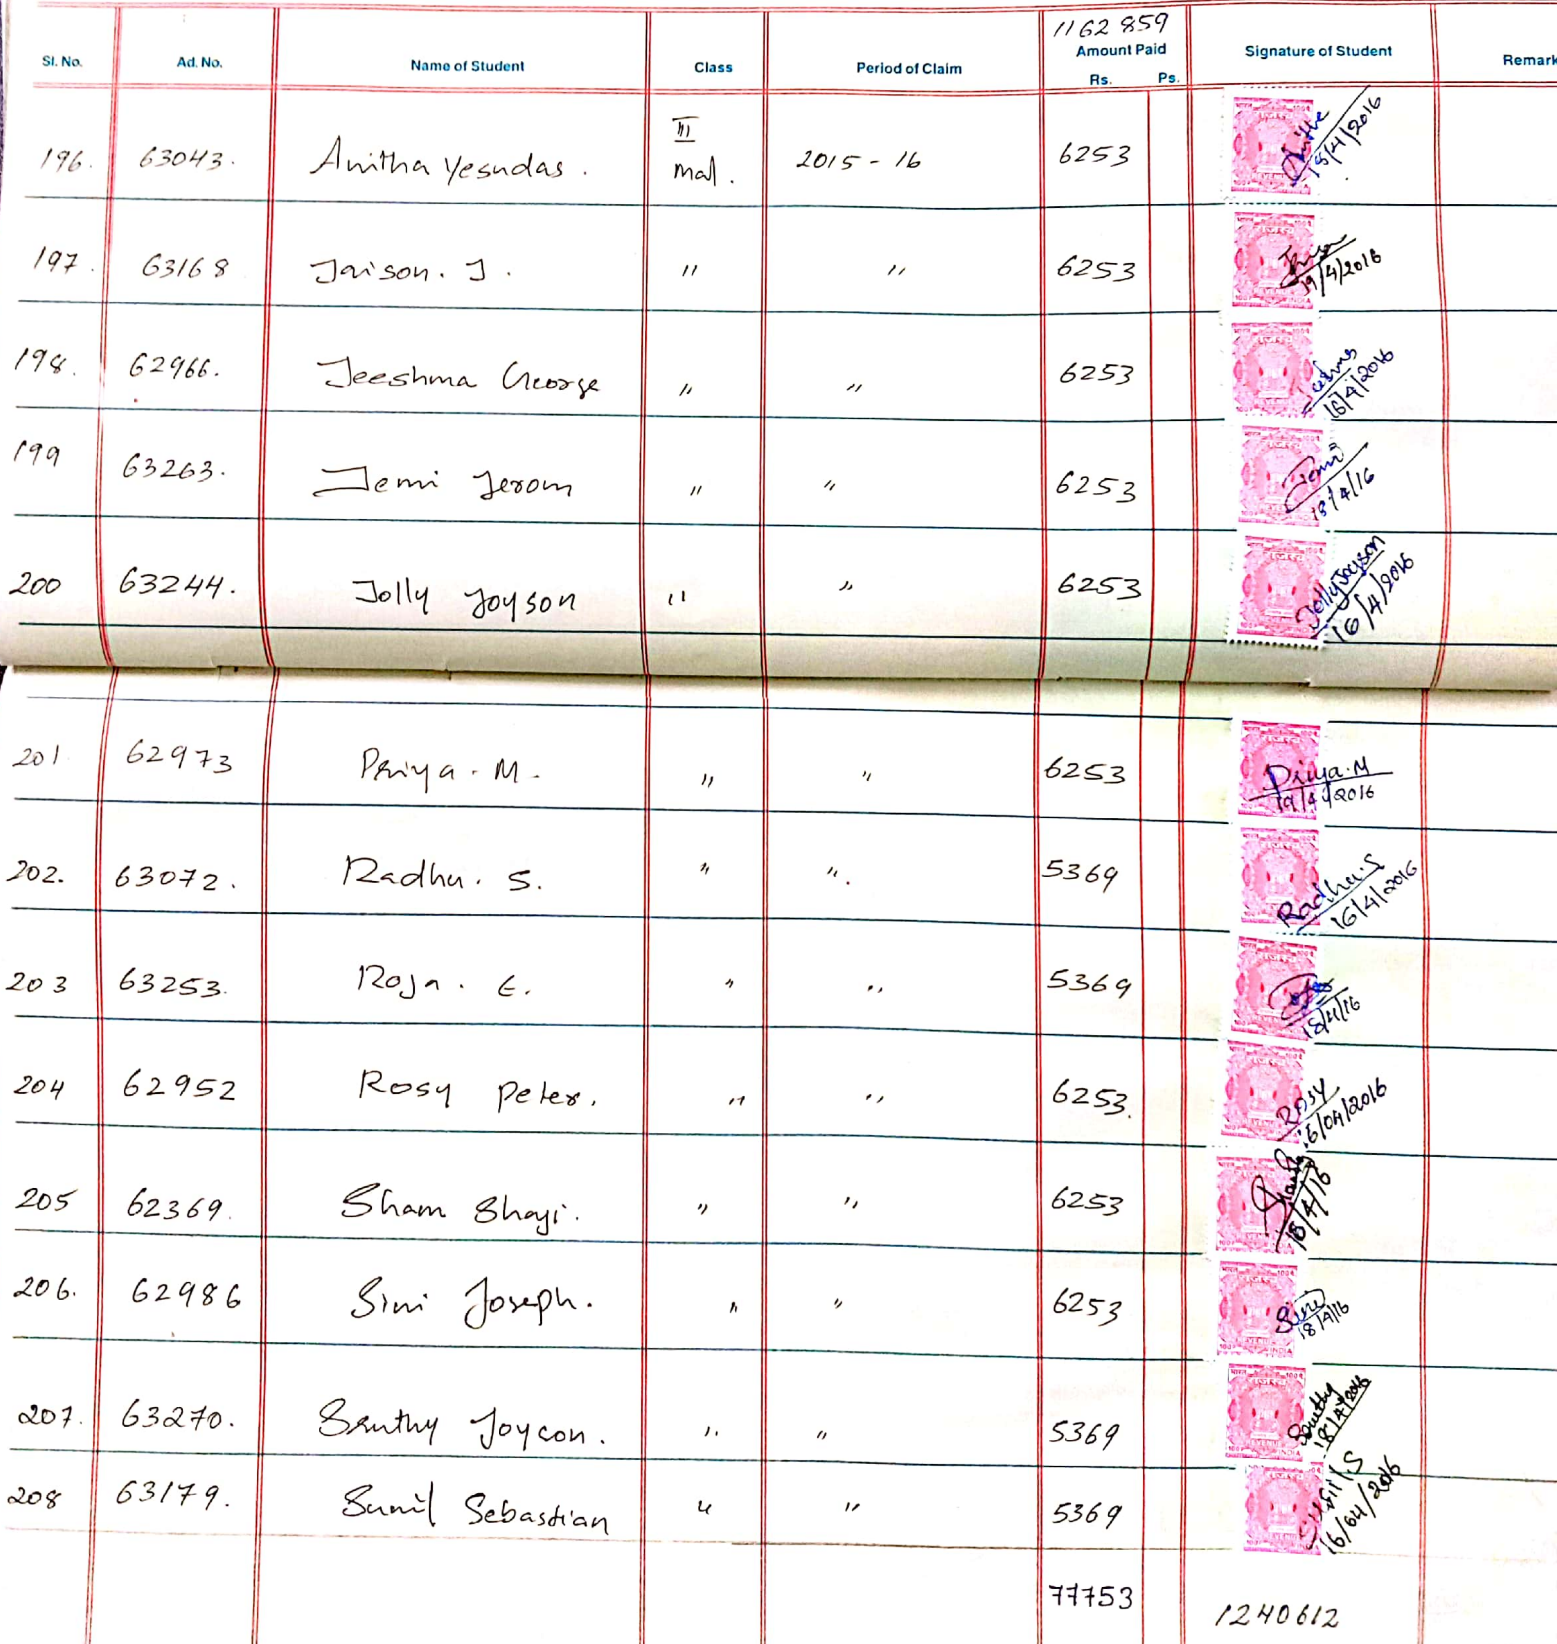 1162859
Sl. No. Ad. No. Name of Student Class Period of Claim Amount Paid Rs. Ps. Signature of Student Remark
196. 63043. Anitha Yesudas. III mal. 2015-16 6253 Anitha 18/4/2016
197. 63168 Jaison. J. " " 6253 19/4/2016
198. 62966. Jeeshma George " " 6253 16/4/2016
199 63263. Jemi Jerom " " 6253 Jemi 18/4/16
200 63244. Jolly Joyson " " 6253 Jolly Joyson 16/4/2016
201 62973 Priya. M. " " 6253 Priya.M 19/4/2016
202. 63072. Radhu. S. " ". 5369 Radhu.S 16/4/2016
203 63253. Roja. E. " " 5369 18/4/16
204 62952 Rosy Peter. " " 6253. Rosy 16/04/2016
205 62369. Sham Shayi. " " 6253 18/4/16
206. 62986 Sini Joseph. " " 6253 Sini 18/4/16
207. 63270. Sruthy Joycon. " " 5369 Sruthy 18/4/2016
208 63179. Sunil Sebastian " " 5369 Sunil S 16/04/2016
77753 1240612